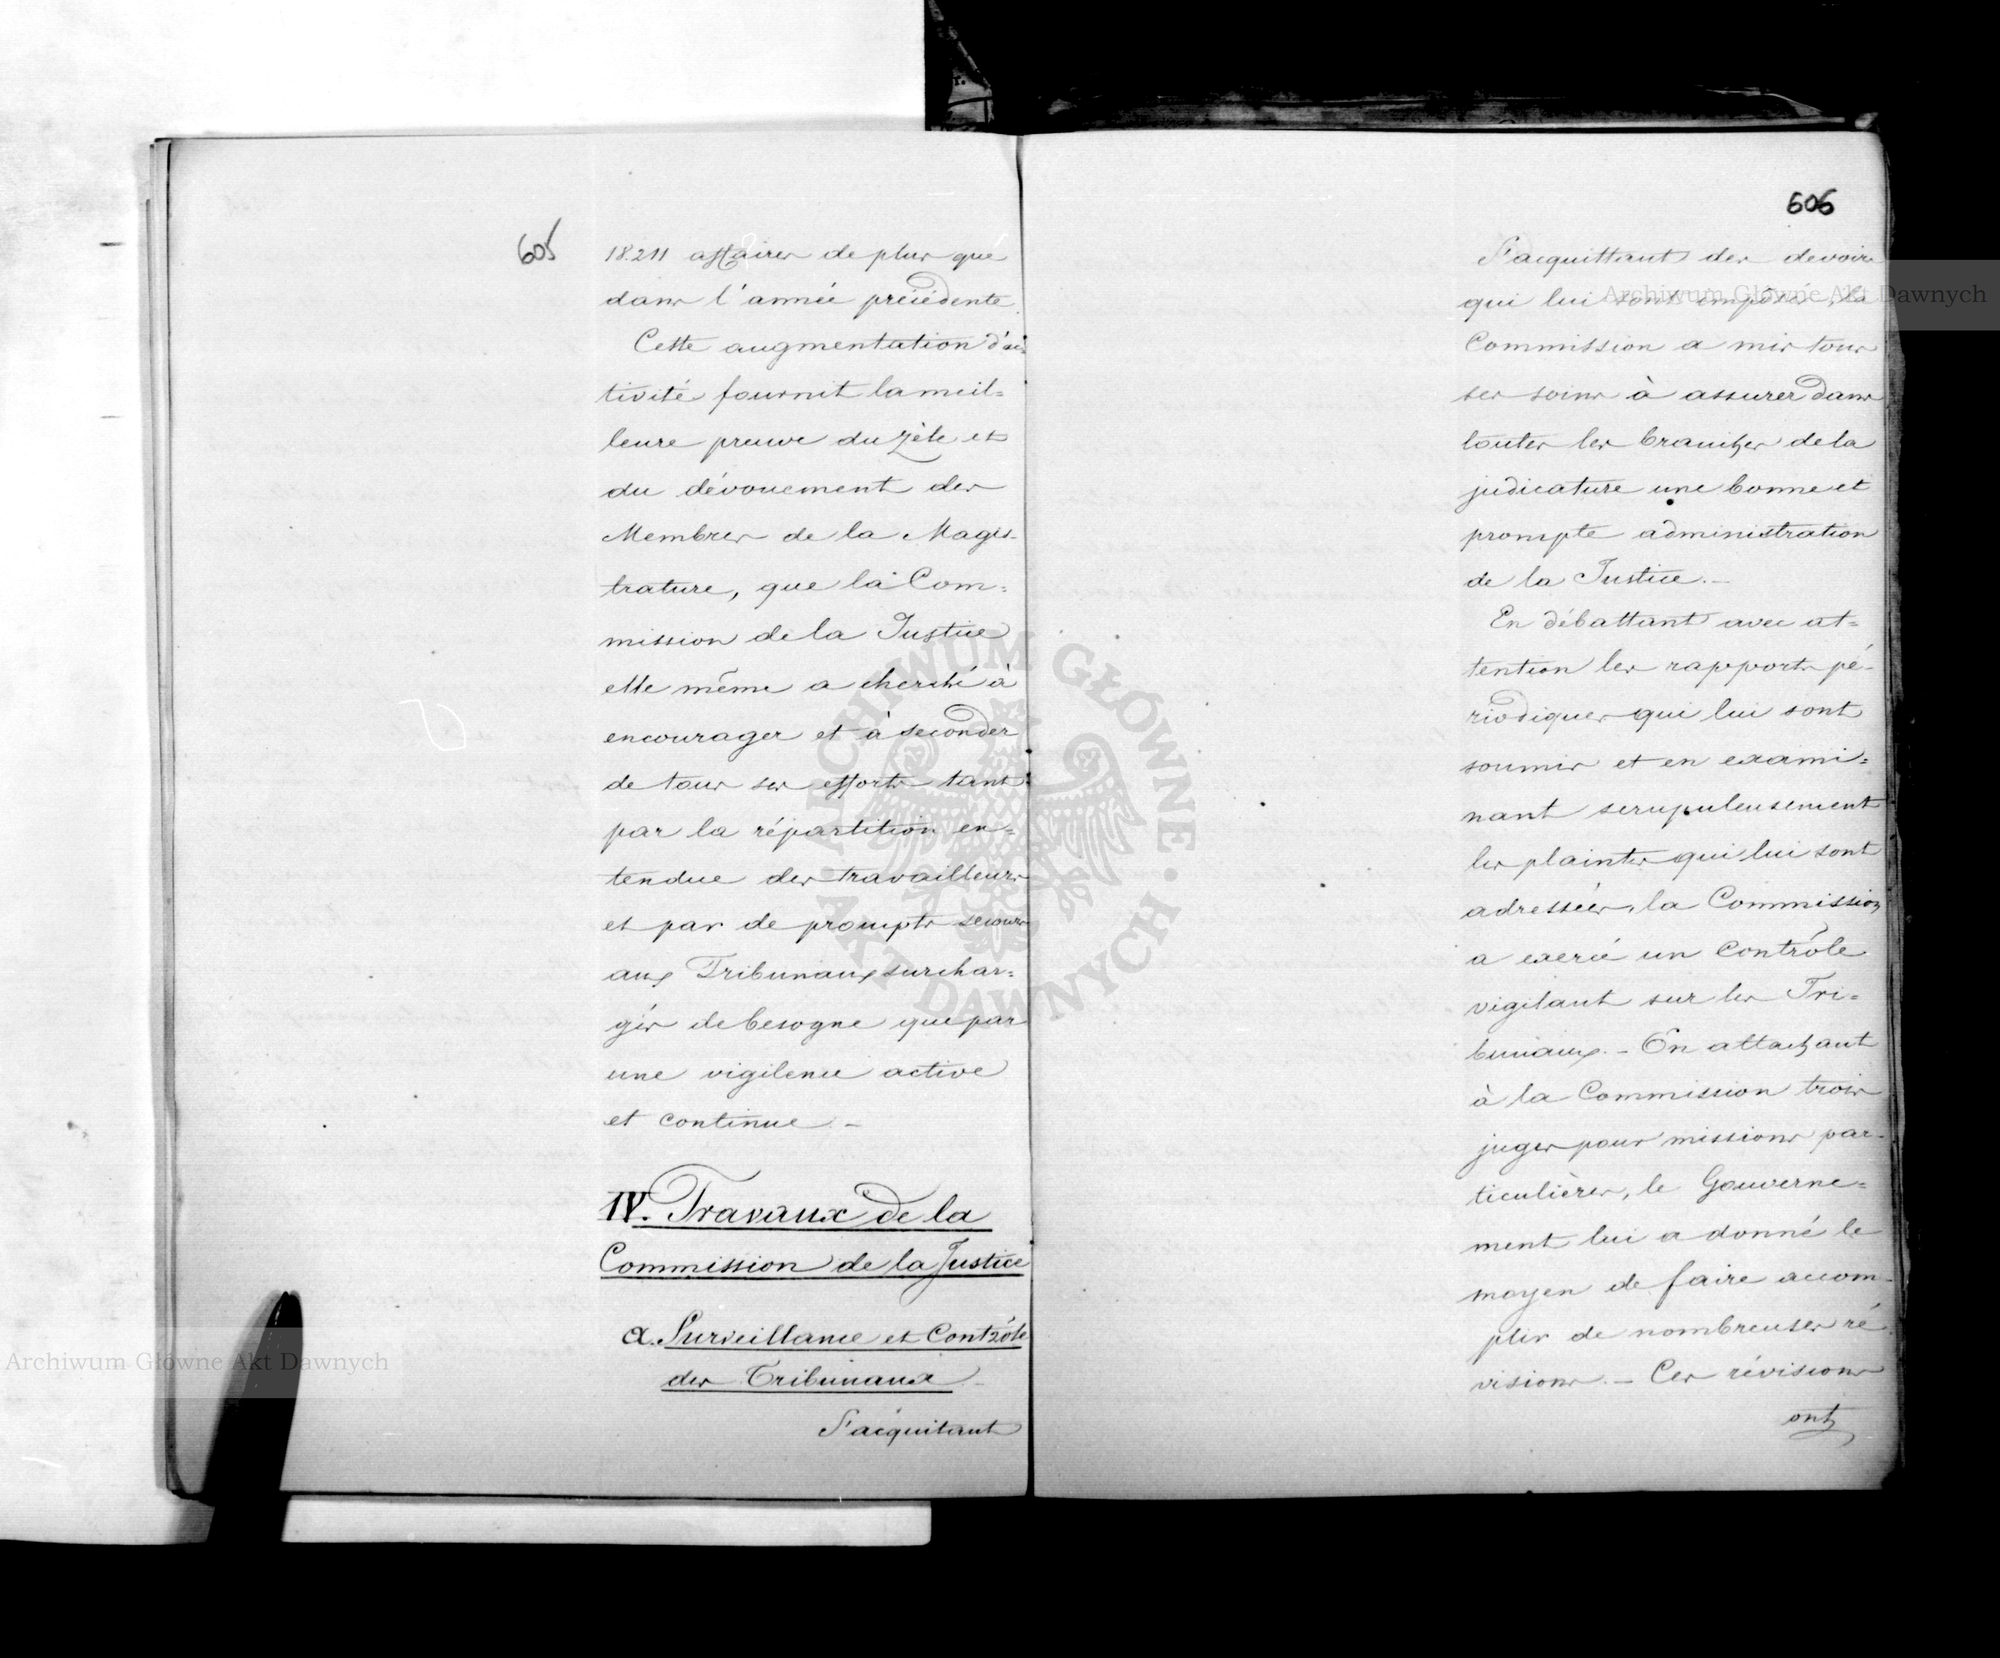 605
18.211 affaires de plus que
dans l'année précédente.
Cette augmentation d'ac-
tivité fournit la meil=
leure preuve du zèle et
du dévouement des
Membres de la Magis-
trature, que la Com=
mission de la Justice
elle même a cherché à
encourager et à seconder
de tous ses efforts tant
par la répartition en=
tendue des travailleurs
et par de prompts secours
aux Tribunaux surchar=
gés de besogne que par
une vigilence active
et continue. -
IV. Travaux de la
Commission de la Justice
a. Surveillance et Contrôle
des Tribunaux
S'acquitant
606
S'acquittant des devoirs
qui lui sont imposés, la
Commission a mis tous
ses soins à assurer dans
toutes les branches de la
judicature une bonne et
prompte administration
de la Justice. -
En débattant avec at=
tention les rapports pé-
riodiques qui lui sont
soumis et en exami=
nant scrupuleusement
les plaintes qui lui sont
adressées, la Commission
a exercé un contrôle
vigilant sur les Tri=
bunaux. - En attachant
à la Commission trois
juges pour missions par-
ticulières, le Gouverne=
ment lui a donné le
moyen de faire accom-
plir de nombreuses ré
visions. - Ces révisions
ont
Archiwum Główne Akt Dawnych
Archiwum Główne Akt Dawnych
ARCHIWUM GŁÓWNE AKT DAWNYCH